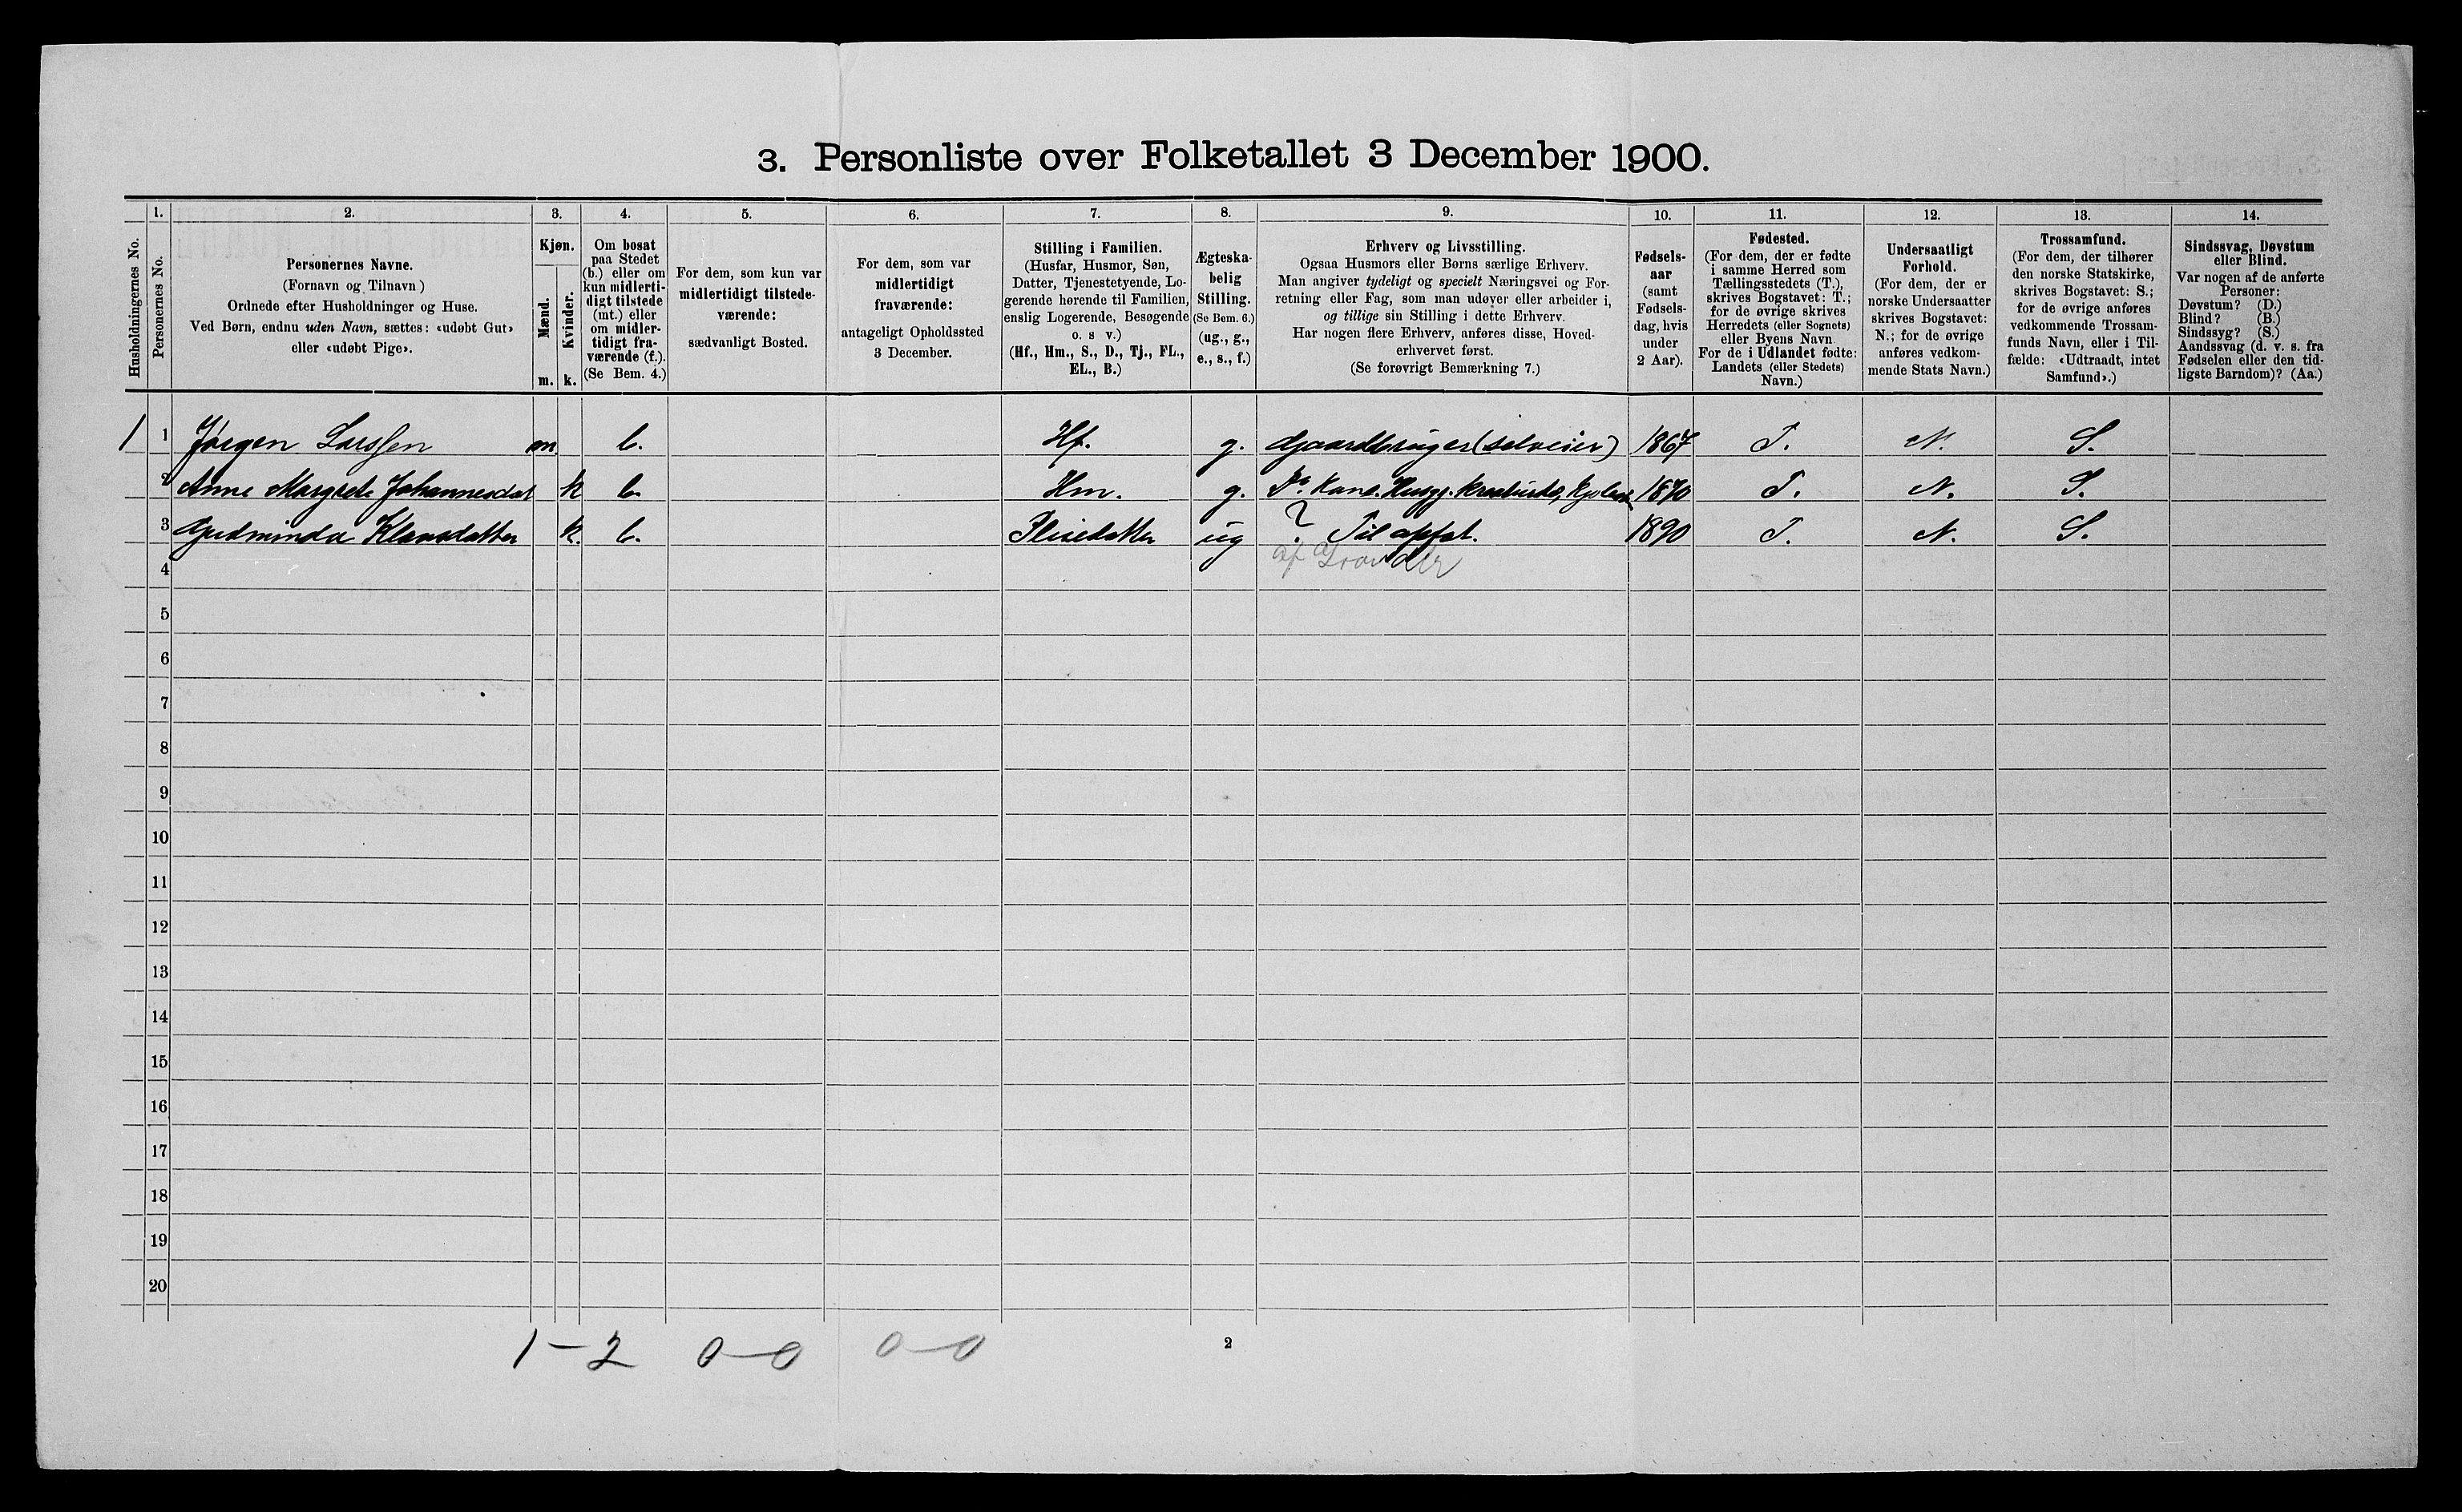 3. Personliste over Folketallet 3 December 1900.
Husholdningernes No.
1.
Personernes No.
2.
Personernes Navne.
(Fornavn og Tilnavn)
Ordnede efter Husholdninger og Huse.
Ved Børn, endnu uden Navn, sættes: «udøbt Gut»
eller «udøbt Pige».
3.
Kjøn.
Mænd.
m.
Kvinder.
k.
4.
Om bosat
paa Stedet
(b.) eller om
kun midlerti-
digt tilstede
(mt.) eller
om midler-
tidigt fra-
værende (f.).
(Se Bem. 4.)
5.
For dem, som kun var
midlertidigt tilstede-
værende:
sædvanligt Bosted.
6.
For dem, som var
midlertidigt
fraværende:
antageligt Opholdssted
3 December.
7.
Stilling i Familien.
(Husfar, Husmor, Søn,
Datter, Tjenestetyende, Lo-
gerende hørende til Familien,
enslig Logerende, Besøgende
o. s v.)
(Hf., Hm., S., D., Tj., FL.,
EL., B.)
8.
Ægteska-
belig
Stilling.
(Se Bem. 6.)
(ug., g.,
e., s., f.)
9.
Erhverv og Livsstilling.
Ogsaa Husmors eller Børns særlige Erhverv.
Man angiver tydeligt og specielt Næringsvei og For-
retning eller Fag, som man udøver eller arbeider i,
og tillige sin Stilling i dette Erhverv.
Har nogen flere Erhverv, anføres disse, Hoved-
erhvervet først.
(Se forøvrigt Bemærkning 7.)
10.
Fødsels-
aar
(samt
Fødsels-
dag, hvis
under
2 Aar).
11.
Fødested.
(For dem, der er fødte
i samme Herred som
Tællingsstedets (T.),
skrives Bogstavet: T.;
for de øvrige skrives
Herredets (eller Sognets)
eller Byens Navn.
For de i Udlandet fødte:
Landets (eller Stedets)
Navn.)
12.
Undersaatligt
Forhold.
(For dem, der er
norske Undersaatter
skrives Bogstavet:
N.; for de øvrige
anføres vedkom-
mende Stats Navn.)
13.
Trossamfund.
(For dem, der tilhører
den norske Statskirke,
skrives Bogstavet: S.;
for de øvrige anføres
vedkommende Trossam-
funds Navn, eller i Til-
fælde: «Udtraadt, intet
Samfund».)
14.
Sindssvag, Døvstum
eller Blind.
Var nogen af de anførte
Personer:
Døvstum? (D.)
Blind? (B.)
Sindssyg? (S.)
Aandssvag (d. v. s. fra
Fødselen eller den tid-
ligste Barndom)? (Aa.)
1 1 Jørgen Larssen m b. Hf. g. Gaardbruger (selveier) 1867 T. N. S.
2 Anne Margrete Johannesdat k b. Hm. g. Do. Kone. Husgj. 1870 T. N. S.
3 Gudminda Klausdatter k. b. Pleiedatter ug ? Til opfst. 1890 T. N. S.
4 af
5
6
7
8
9
10
11
12
13
14
15
16
17
18
19
20
1 – 2 0 – 0 0 – 0
2